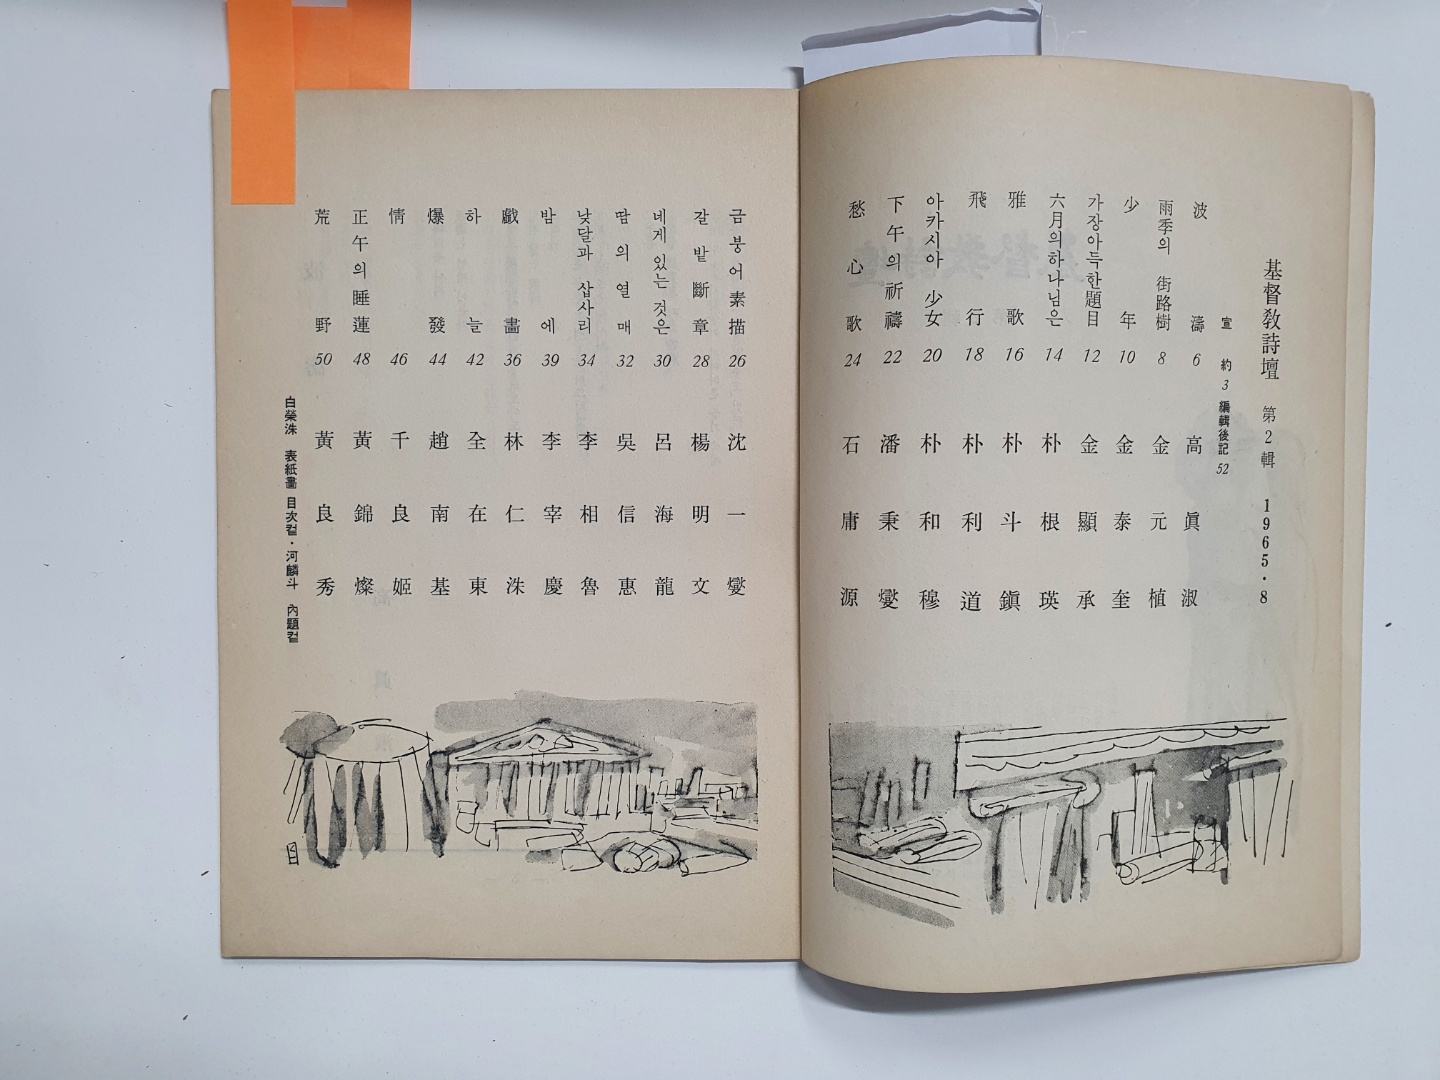 基督敎詩壇 第2輯 1965·8
宣 約 3 編輯後記 52
波濤 6 高眞淑
雨季의 街路樹 8 金元植
少年 10 金泰奎
가장아득한題目 12 金顯承
六月의하나님은 14 朴根瑛
雅歌 16 朴斗鎭
飛行 18 朴利道
아카시아 少女 20 朴和穆
下午의祈禱 22 潘秉燮
愁心歌 24 石庸源
금붕어素描 26 沈一燮
갈밭斷章 28 楊明文
네게 있는 것은 30 呂海龍
땀의열매 32 吳信惠
낮달과 삽사리 34 李相魯
밤에 39 李宰慶
戱畵 36 林仁洙
하늘 42 全在東
爆發 44 趙南基
情 46 千良姬
正午의睡蓮 48 黃錦燦
荒野 50 黃良秀
白榮洙 表紙畵 目次컽·河麟斗 內題컽